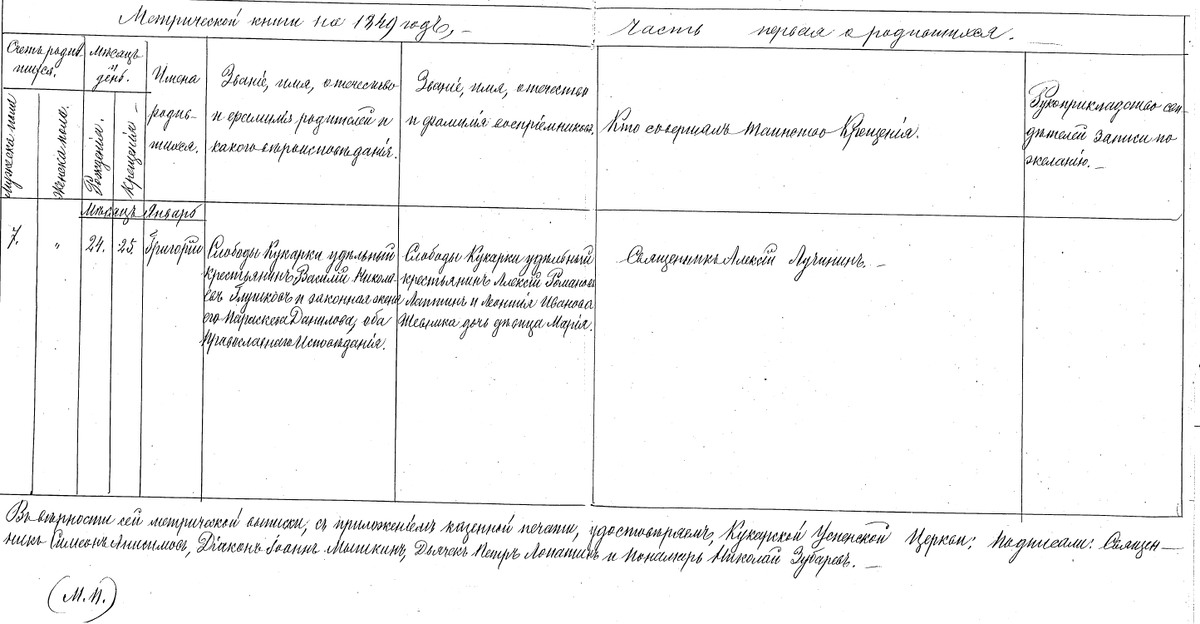 Метрической книги на 1849 годъ,
Часть первая о родившихся.
Счетъ родив-
шихся.
Мужеска пола
Женска пола.
Мѣсяцъ
и
день.
Рожденія.
Крещенія
Имена
родив-
шихся.
Званіе, имя, отечество
и фамилія родителей и
какого вѣроисповѣданія.
Званіе, имя, отечество
и фамилія воспріемниковъ.
Кто совершалъ таинство Крещенія.
Рукоприкладство сви-
дѣтелей записи по
желанію.
Мѣсяцъ Январь
7.
"
24.
25.
Григорій
Слободы Кукарки удѣльный
крестьянинъ Василій Никола-
евъ Глушковъ и законная жена
его Параскева Данилова, оба
православнаго Исповѣданія.
Слободы Кукарки удѣльный
крестьянинъ Алексій Романовъ
Лаптинъ и Леонтія Иванова
дочь дѣвица Марія.
Священникъ Алексій Лучининъ.
Въ вѣрности сей метрической выписки, съ приложеніемъ казенной печати, удостовѣряемъ, Кукарской Успенской Церкви: подписали: Священ-
никъ Симеонъ Анисимовъ, Діаконъ Іоаннъ Мышкинъ, Дьячекъ Петръ Лопатинъ и Пономарь Николай Зубаревъ.
(М.П.)